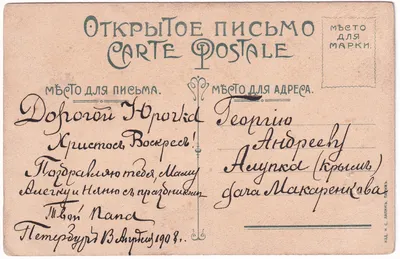 ОТКРЫТОЕ ПИСЬМО
CARTE POSTALE
МѢСТО ДЛЯ МАРКИ.
МѢСТО ДЛЯ ПИСЬМА.
Дорогой Юрочка
Христосъ Воскресъ!
Поздравляю тебя, Маму
Алечку и Няню съ праздникомъ
Твой папа
Петербургъ 13 Апрѣля 1908 г.
МѢСТО ДЛЯ АДРЕСА.
Георгію
Андрееву
Алупка (Крымъ)
дача Макаренкова